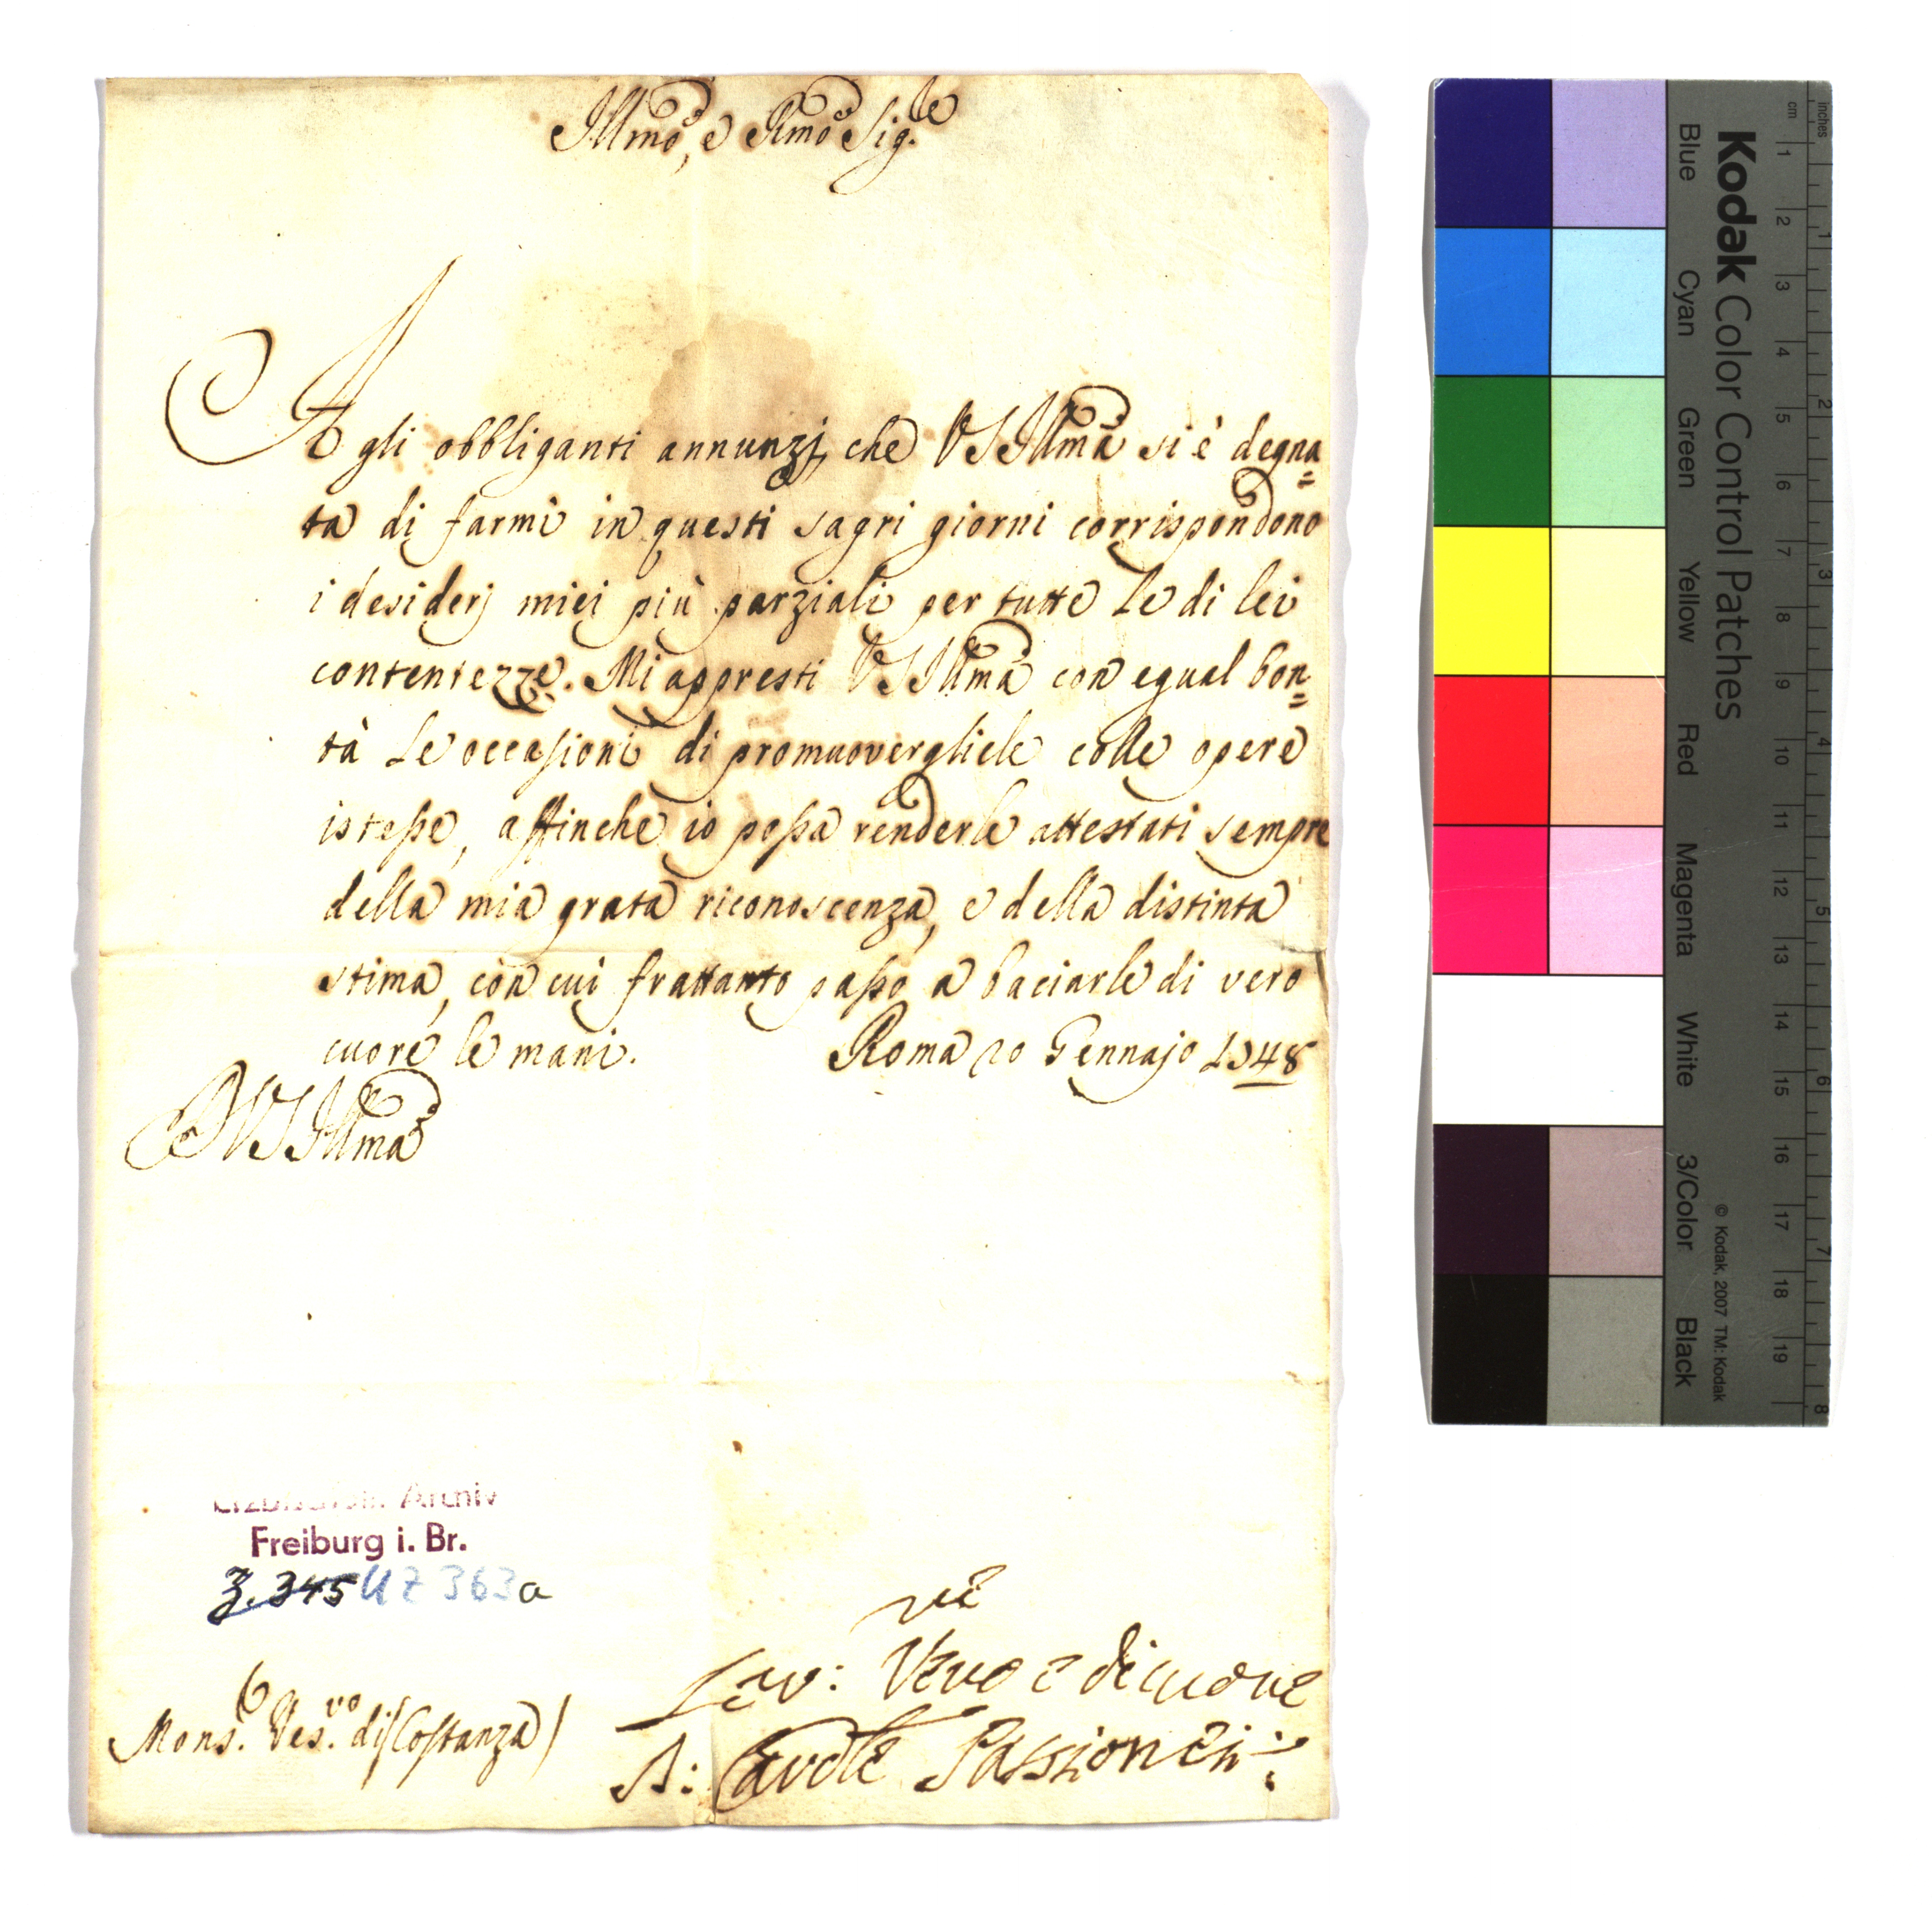 Illmo, e Rmo Sig.re
A gli obbliganti annunzj, che VS Illma si è degna=
ta di farmi in questi sagri giorni corrispondono
i desiderj miei più parziali per tutte le di lei
contentezze. Mi appresti VS Illma con egual bon=
tà le occasioni di promuovergliele colle opere
istesse, affinche io possa renderle attestati sempre
della mia grata riconoscenza, e della distinta
stima, con cui frattanto passo a baciarle di vero
cuore le mani. Roma 20 Gennajo 1748
VS Illma
Erzbischöfl. Archiv
Freiburg i. Br.
Z. 345 UZ 363a
Ser: Vero e di cuore
Mons.r Ves.vo di Costanza
A: Cardle Passionei
Kodak Color Control Patches
Blue Cyan Green Yellow Red Magenta White 3/Color Black
© Kodak, 2007 TM: Kodak
cm 1 2 3 4 5 6 7 8 9 10 11 12 13 14 15 16 17 18 19
inches 1 2 3 4 5 6 7 8